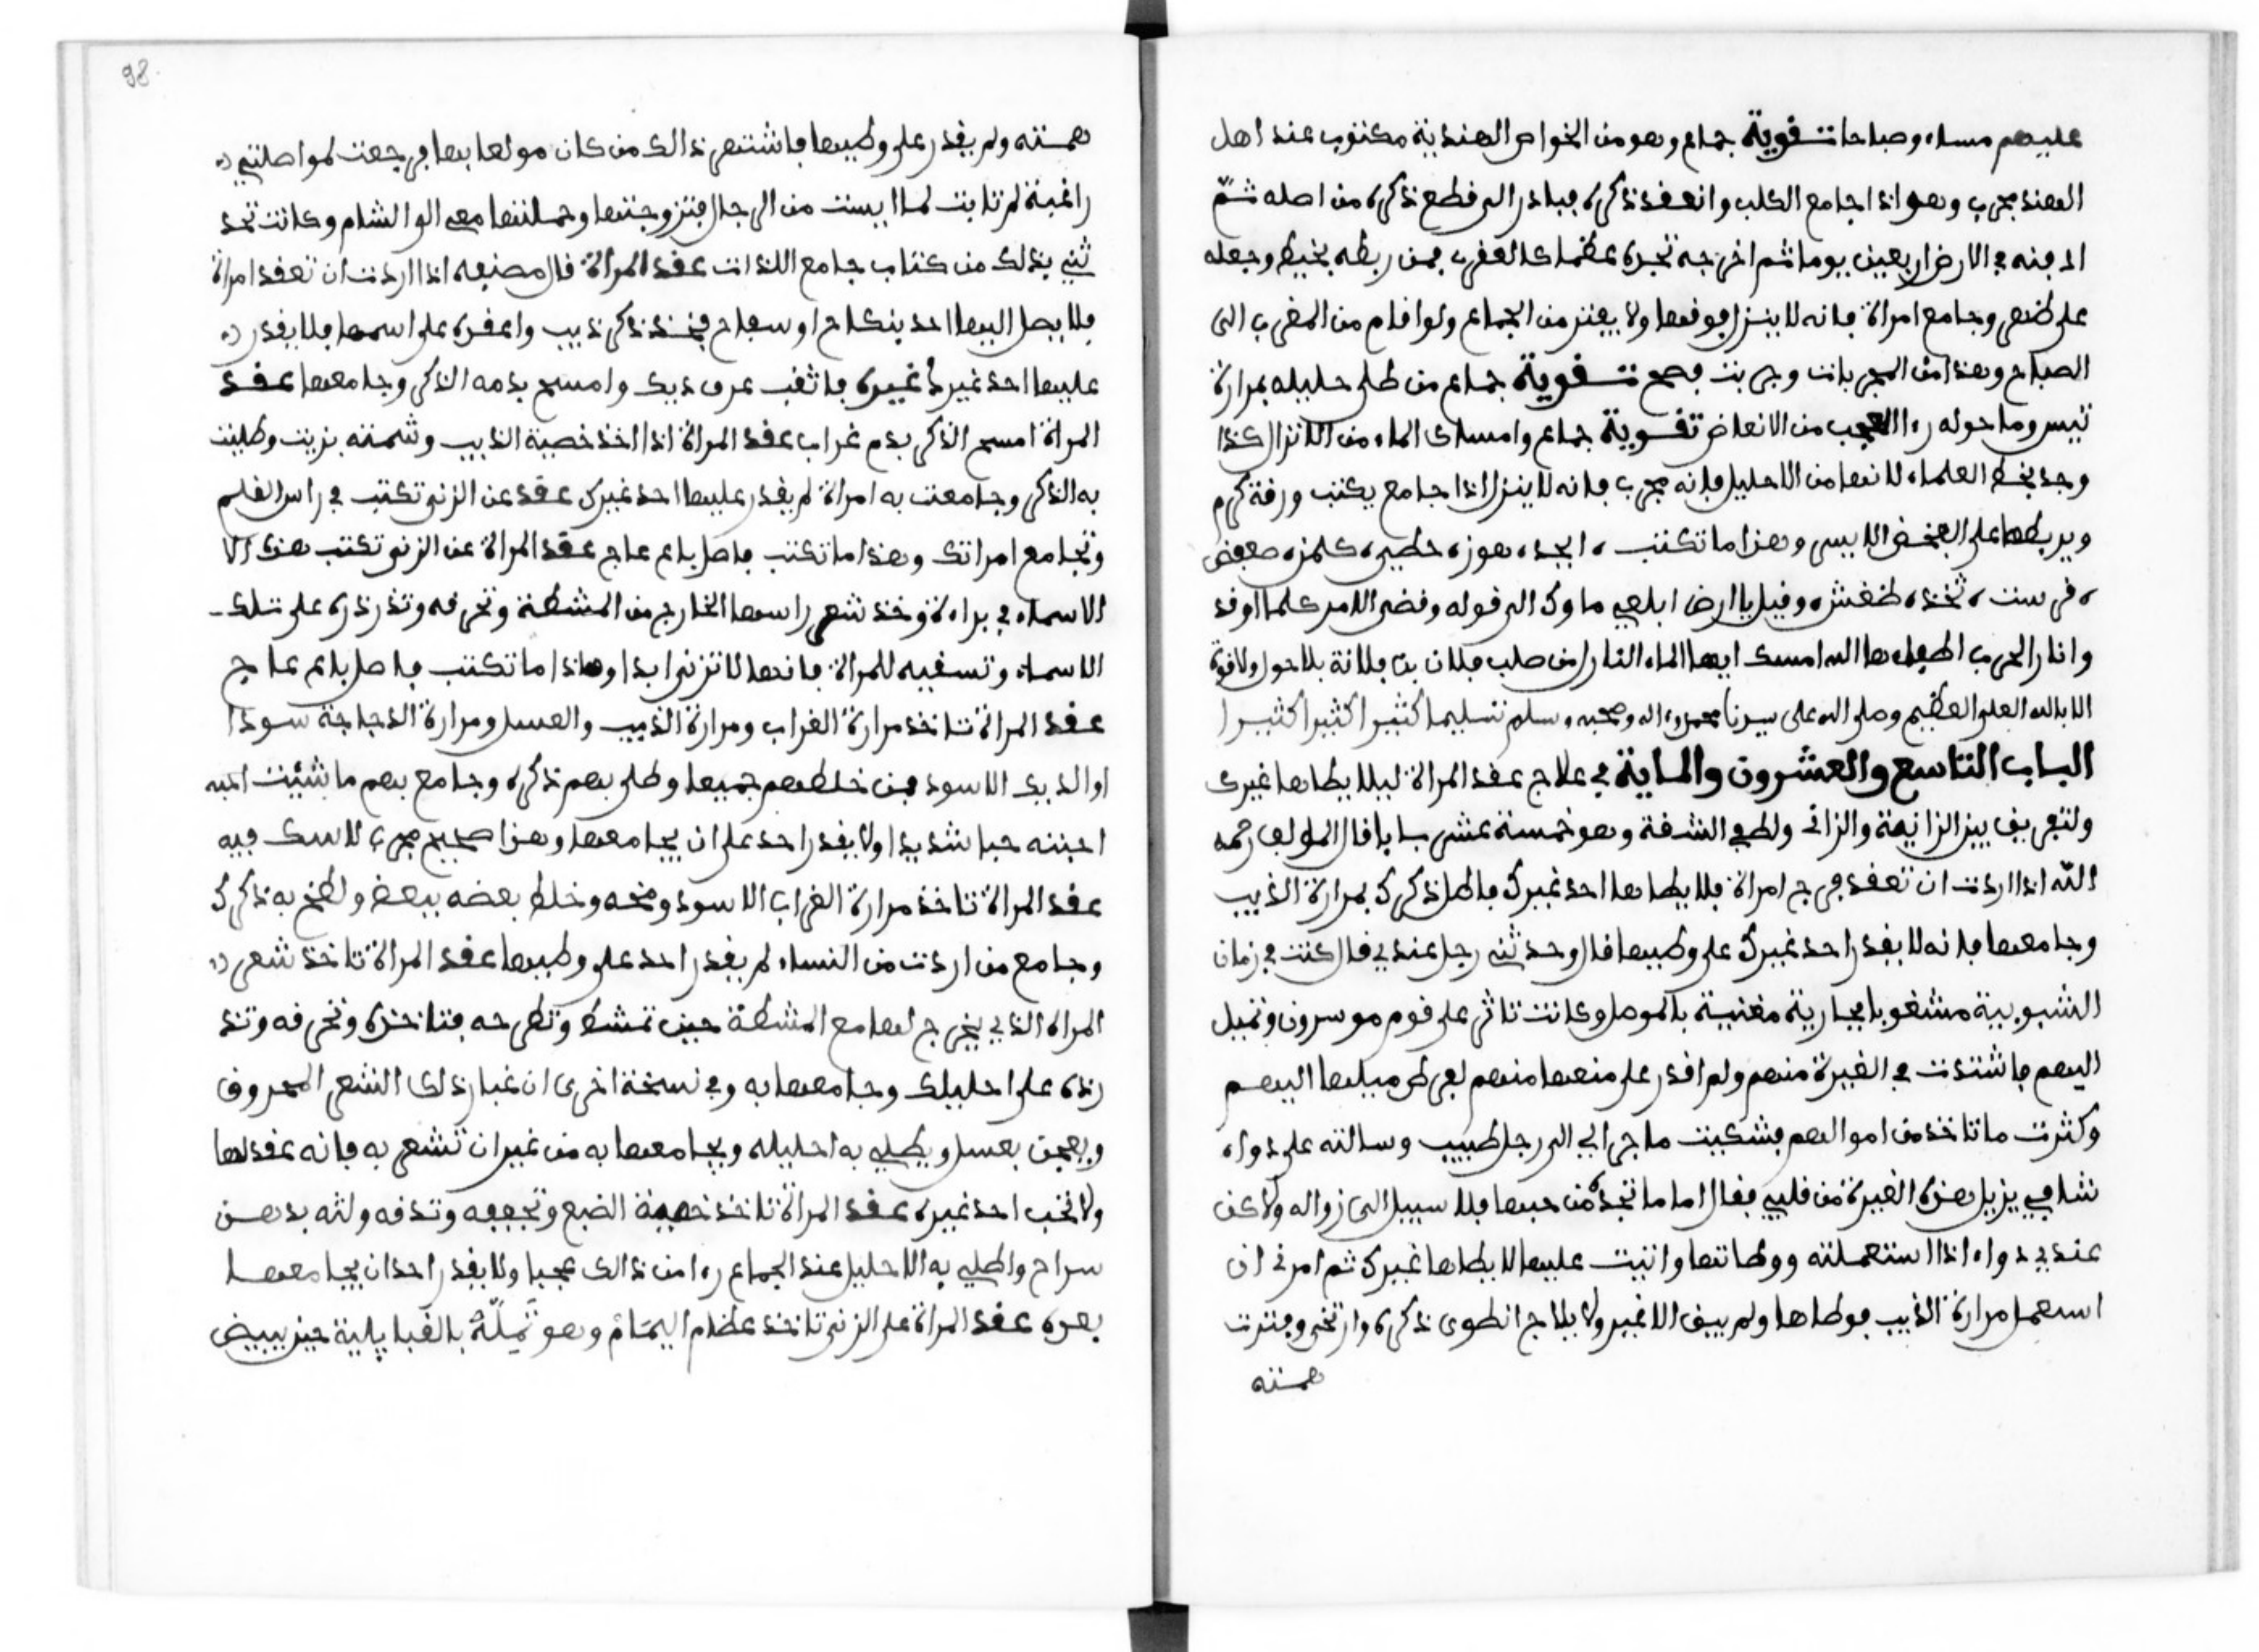 عليهم مساء وصباحا تقوية جماع وهو من الخواص الهندية مكتوب عند اهل
الهند مجرب وهو اذا جامع الكلب وانعقد ذكره فبادر الى قطع ذكره من اصله ثم
ادفنه في الارض اربعين يوما ثم اخرجه تجده عظما كالعقرب فمن ربطه بخيط وجعله
على ظهره وجامع امراة فانه لا ينزل فوقها ولا يفتر من الجماع ولو اقام من المغرب الى
الصباح وهذا من المجربات وجربت فصح تقوية جماع من طلى حليله بمرارة
تيس وما حوله راا العجب من الانعاض تقوية جماع وامساك الماء من الانزال كذا
وجد بخط العلماء لا نها من الاحليل فانه مجرب فانه لا ينزل اذا جامع يكتب ورقة كرم
ويربطها على الفخض الايسر وهذا ما تكتب ، ابجد، هوز، حطي، كلمن، صعفض
، قرست ، ثخذ، ظغش، وقيل يا ارض ابلعي ماءك الى قوله وقضى الامر كلما اوقد
وانارا للحرب اطفاها الله امسك ايها الماء النازل من صلب فلان بن فلانة بلا حول ولا قوة
الا بالله العلي العظيم وصلى الله على سيدنا محمد واله وصحبه وسلم تسليما كثيرا كثيرا كثيرا
الباب التاسع والعشرون والماية في علاج عقد المراة ليلا يطاها غيرك
ولتفريق بين الزانية والزاني ولطفي الشفة وهو خمسة عشر بابا قال المولف رحمه
الله اذا اردت ان تعقد فرج امراة فلا يطاها احد غيرك فاطل ذكرك بمرارة الذيب
وجامعها فانه لا يقدر احد غيرك على وطيها قال وحدثني رجل عندي قال كنت في زمان
الشبوبية مشغوبا بجارية مغنية بالموصل وكانت تاثر على قوم موسرون وتميل
اليهم فاشتدت في الغيرة منهم ولم اقدر على منعها منهم لفرط ميلها اليهم
وكثرت ما تاخذ من اموالهم فشكيت ما جرالي الى رجل طبيب وسالته على دواء
شافي يزيل هذه الغيرة من قلبي فقال اما ما تجده من حبها فلا سبيل الى زواله ولاكن
عندي دواء اذا استعملته ووطاتها وانيت عليها لا يطاها غيرك ثم امرني ان
استعمل مرارة الذيب فوطاها ولم يبق الا غير ولا يلاج انطوى ذكره وارتخى وفترت
همته
همته ولم يقدر على وطيها فاشتهر ذالك من كان مولعا بها فرجعت لمواصلتي
راغبة لم تابت لما ايست من الرجال فتزوجتها وحملتها معي الى الشام وكانت تحد
ثني بذلك من كتاب جامع اللذات عقد المراة قال مصنعه اذا اردت ان تعقد امراة
فلا يصل اليها احد بنكاح او سفاح فخذ ذكر ذيب واعقده على اسمها فلا يقدر
عليها احد غيره فاثقب عرف ديك وامسح بدمه الذكر وجامعها عقد
المراة امسح الذكر بدم غراب عقد المراة اذا اخذ خصية الذيب وشمته بزيت وطليت
به الذكر وجامعت به امراة لم يقدر عليها احد غيرك عقد عن الزنى تكتب في راس القلم
وتجامع امراتك وهذا ما تكتب فاصل باع عاج عقد المراة عن الزنى تكتب هذه الا
الاسماء في براءة وخذ شعر راسها الخارج من المشطة وتحرقه وتذرذره على تلك
الاسماء وتسقيه للمراة فانها لا تزني ابدا وهاذا ما تكتب فاصل باع عاج
عقد المراة تاخذ مرارة الغراب ومرارة الذيب والعسل ومرارة الدجاجة سودا
او الديك الاسود فمن خلطهم جميعا وطلى بهم ذكره وجامع بهم ما شيئت احبه
احبته حبا شديدا ولا يقدر احد على ان يجامعها وهذا صحيح مجرب لا سك فيه
عقد المراة تاخذ مرارة الغراب الاسود ومخه وخلط بعضه ببعض ولطخ به ذكرك
وجامع من اردت من النساء لم يقدر احد على وطيها عقد المراة تاخذ شعر
المراة الذي يخرج لها مع المشطة حين تمشط وتطرحه فتاخذه وتحرقه وتذ
رذه على احليلك وجامعها به وفي نسخة اخرى ان غبار ذلك الشعر المحروق
ويعجن بعسل ويطلي به احليله ويجامعها به من غير ان تشعر به فانه عقد لها
ولا تحب احد غيره عقد المراة تاخذ خصية الضبع وتجففه وتدقه ولته بدهن
سراج واطلي به الاحليل عند الجماع راا من ذالك عجبا ولا يقدر احد ان يجامعها
بعده عقد المراة على الزنى تاخذ عظام اليمام وهو ثملة بالقبايلية حين يبيض